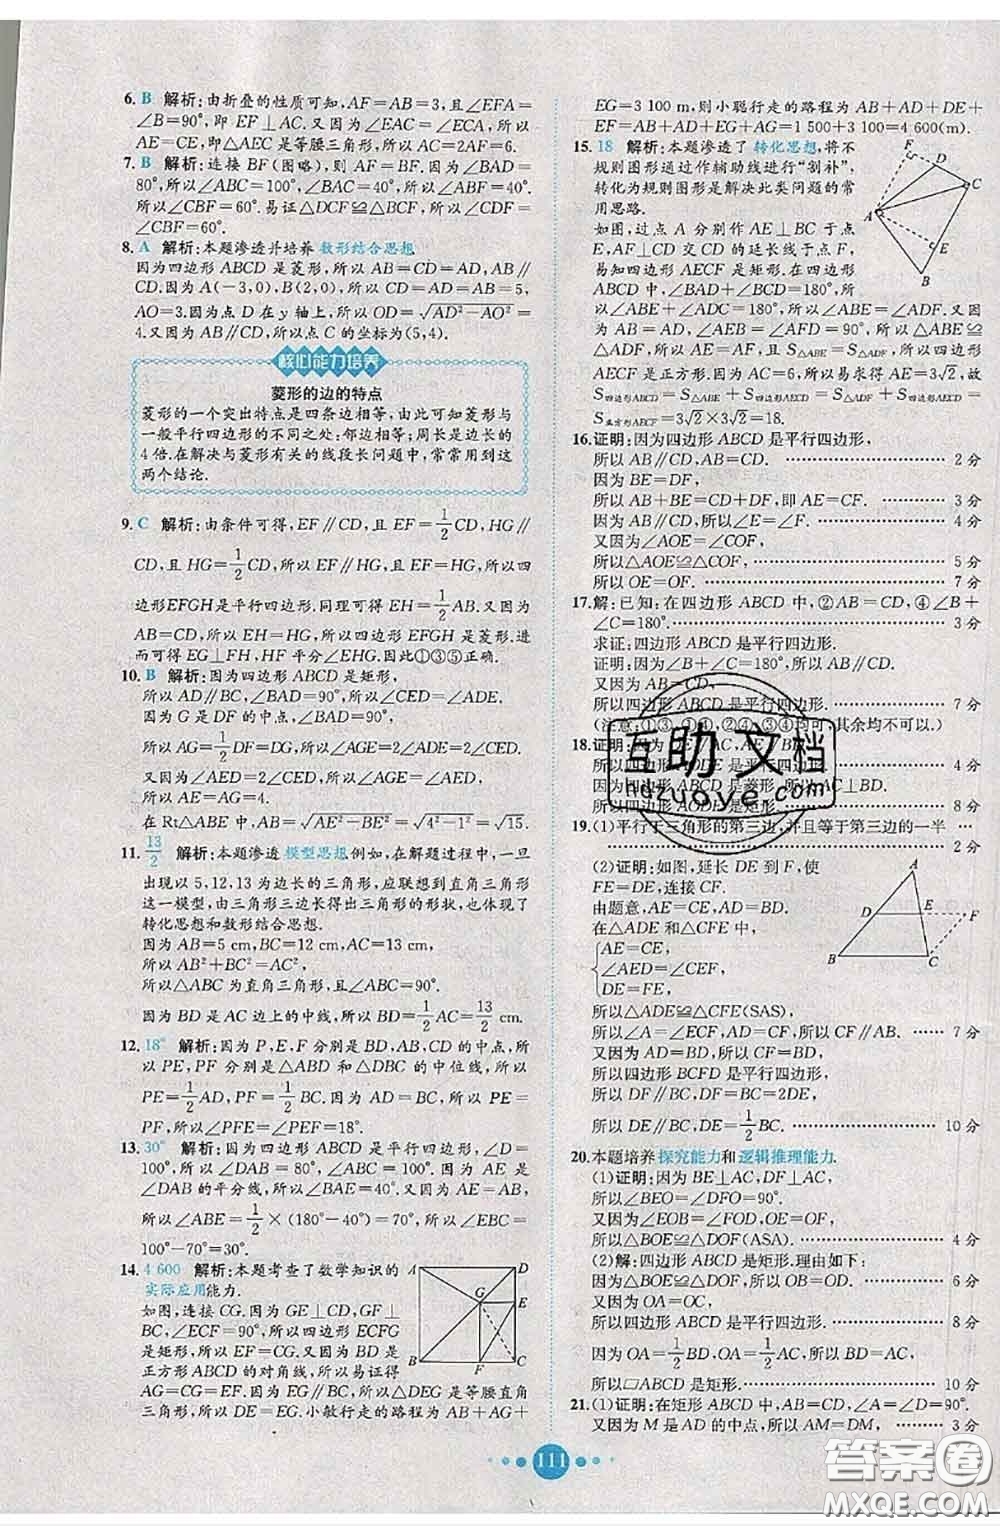 6. B 解析:由折叠的性质可知,AF=AB=3,且∠EFA=
∠B=90°,即EF⊥AC.又因为∠EAC=∠ECA,所以
AE=CE,即△AEC是等腰三角形,所以AC=2AF=6.
7. B 解析:连接BF(图略),则AF=BF.因为∠BAD=
80°,所以∠ABC=100°,∠BAF=40°,所以∠ABF=40°.
所以∠CBF=60°.易证△DCF≌△CBF,所以∠CDF=
∠CBF=60°.
8. A 解析:本题渗透并培养 数形结合思想.
因为四边形ABCD是菱形,所以AB=CD=AD,AB∥
CD.因为A(-3,0),B(2,0),所以CD=AD=AB=5,
AO=3.因为点D在y轴上,所以OD=√(AD²-AO²)=
4.又因为AB∥CD,所以点C的坐标为(5,4).
核心能力培养
菱形的边的特点
菱形的一个突出特点是四条边相等,由此可知菱形与
一般平行四边形的不同之处:邻边相等;周长是边长的
4倍.在解决与菱形有关的线段长问题中,常常用到这
两个结论.
9. C 解析:由条件可得,EF∥CD,且EF=1/2CD,HG∥
CD,且HG=1/2CD,所以EF∥HG,EF=HG,所以四
边形EFGH是平行四边形.同理可得EH=1/2AB.又因为
AB=CD,所以EH=HG,所以四边形EFGH是菱形.进
而可得EG⊥FH,HF平分∠EHG.因此①③⑤正确.
10. B 解析:因为四边形ABCD是矩形,
所以AD∥BC,∠BAD=90°,所以∠CED=∠ADE.
又因为G是DF的中点,∠BAD=90°,
所以AG=1/2DF=DG,所以∠AGE=2∠ADE=2∠CED
又因为∠AED=2∠CED,所以∠AGE=∠AED,
所以AE=AG=4.
在Rt△ABE中,AB=√(AE²-BE²)=√(4²-1²)=√15.
11. 13/2 解析:本题渗透 模型思想.例如,在解题过程中,一旦
出现以5,12,13为边长的三角形,应联想到直角三角形
这一模型,由三角形三边长得出三角形的形状,也体现了
转化思想和数形结合思想.
因为AB=5 cm,BC=12 cm,AC=13 cm,
所以AB²+BC²=AC²,
所以△ABC为直角三角形,且∠ABC=90°.
因为BD是AC边上的中线,所以BD=1/2AC=13/2 cm.
12. 18° 解析:因为P,E,F分别是BD,AB,CD的中点,所
以PE,PF分别是△ABD和△DBC的中位线,所以
PE=1/2AD,PF=1/2BC.又因为AD=BC,所以PE=
PF,所以∠PFE=∠PEF=18°.
13. 30° 解析:因为四边形ABCD是平行四边形,∠D=
100°,所以∠DAB=80°,∠ABC=100°.又因为AE是
∠DAB的平分线,所以∠BAE=40°.又因为AE=AB,
所以∠ABE=1/2×(180°-40°)=70°,所以∠EBC=
100°-70°=30°.
14. 4 600 解析:本题考查了数学知识的
实际应用能力.
如图,连接CG.因为GE⊥CD,GF⊥
BC,∠ECF=90°,所以四边形ECFG
是矩形,所以EF=CG.又因为BD是
正方形ABCD的对角线,所以易证得
AG=CG=EF.因为GE⊥DC,所以△DEG是等腰直角三角
形,所以DE=EG.小敏行走的路程为AB+AG+
A
D
G
E
B
F
C
EG=3 100 m,则小聪行走的路程为AB+AD+DE+
EF=AB+AD+EG+AG=1 500+3 100=4 600(m).
15. 18 解析:本题渗透了 转化思想,将不
规则图形通过作辅助线进行“割补”,
转化为规则图形是解决此类问题的常
用思路.
如图,过点A分别作AE⊥BC于点
E,AF⊥CD交CD的延长线于点F,
易知四边形AECF是矩形.在四边
形ABCD中,∠B+∠ADC=180°,所
以∠ADF+∠ADC=180°,所以∠ABE=∠ADF.又因
为AB=AD,∠AEB=∠AFD=90°,所以△ABE≌
△ADF,所以AE=AF,且S△ABE=S△ADF,所以四边形
AECF是正方形.因为AC=6,所以AE=AF=3√2,故
S四边形ABCD=S△ABE+S四边形AECD=S△ADF+S四边形AECD=
S正方形AECF=3√2×3√2=18.
F
D
C
A
E
B
16. 证明:因为四边形ABCD是平行四边形,
所以AB∥CD,AB=CD. 2分
因为BE=DF,
所以AB+BE=CD+DF,即AE=CF. 3分
因为AB∥CD,所以∠E=∠F. 4分
又因为∠AOE=∠COF,
所以△AOE≌△COF, 5分
所以OE=OF. 7分
17. 解:已知:在四边形ABCD中,②AB=CD,④∠B+
∠C=180°. 3分
求证:四边形ABCD是平行四边形.
证明:因为∠B+∠C=180°,所以AB∥CD.
又因为AB=CD,
所以四边形ABCD是平行四边形. 7分
(注意:①③,①④,②④,③④均可,其余均不可以.)
18. 证明:因为DE∥AC,AE∥BD,
所以四边形AODE是平行四边形. 4分
因为四边形ABCD是菱形,所以AC⊥BD,
所以四边形AODE是矩形. 8分
19. (1)平行于三角形的第三边,并且等于第三边的一半
2分
(2)证明:如图,延长DE到F,使
FE=DE,连接CF.
由题意,AE=CE,AD=BD.
在△ADE和△CFE中,
AE=CE,
∠AED=∠CEF,
DE=FE,
A
D
E
F
B
C
所以△ADE≌△CFE(SAS),
所以∠A=∠ECF,AD=CF,所以CF∥AB. 7分
又因为AD=BD,所以CF=BD,
所以四边形BCFD是平行四边形,
所以DF∥BC,DF=BC=2DE,
所以DE∥BC,DE=1/2BC. 10分
20. 本题培养 探究能力和逻辑推理能力.
(1)证明:因为BE⊥AC,DF⊥AC,
所以∠BEO=∠DFO=90°.
又因为∠EOB=∠FOD,OE=OF,
所以△BOE≌△DOF(ASA). 4分
(2)解:四边形ABCD是矩形.理由如下:
因为△BOE≌△DOF,所以OB=OD. 6分
又因为OA=OC,
所以四边形ABCD是平行四边形. 8分
因为OA=1/2BD,OA=1/2AC,所以BD=AC,
所以▱ABCD是矩形. 10分
21. (1)证明:在矩形ABCD中,AB=CD,∠A=∠D=90°.
又因为M是AD的中点,所以AM=DM, 3分
111
互助文档
huzuoye.com
答案圈
MXQE.COM